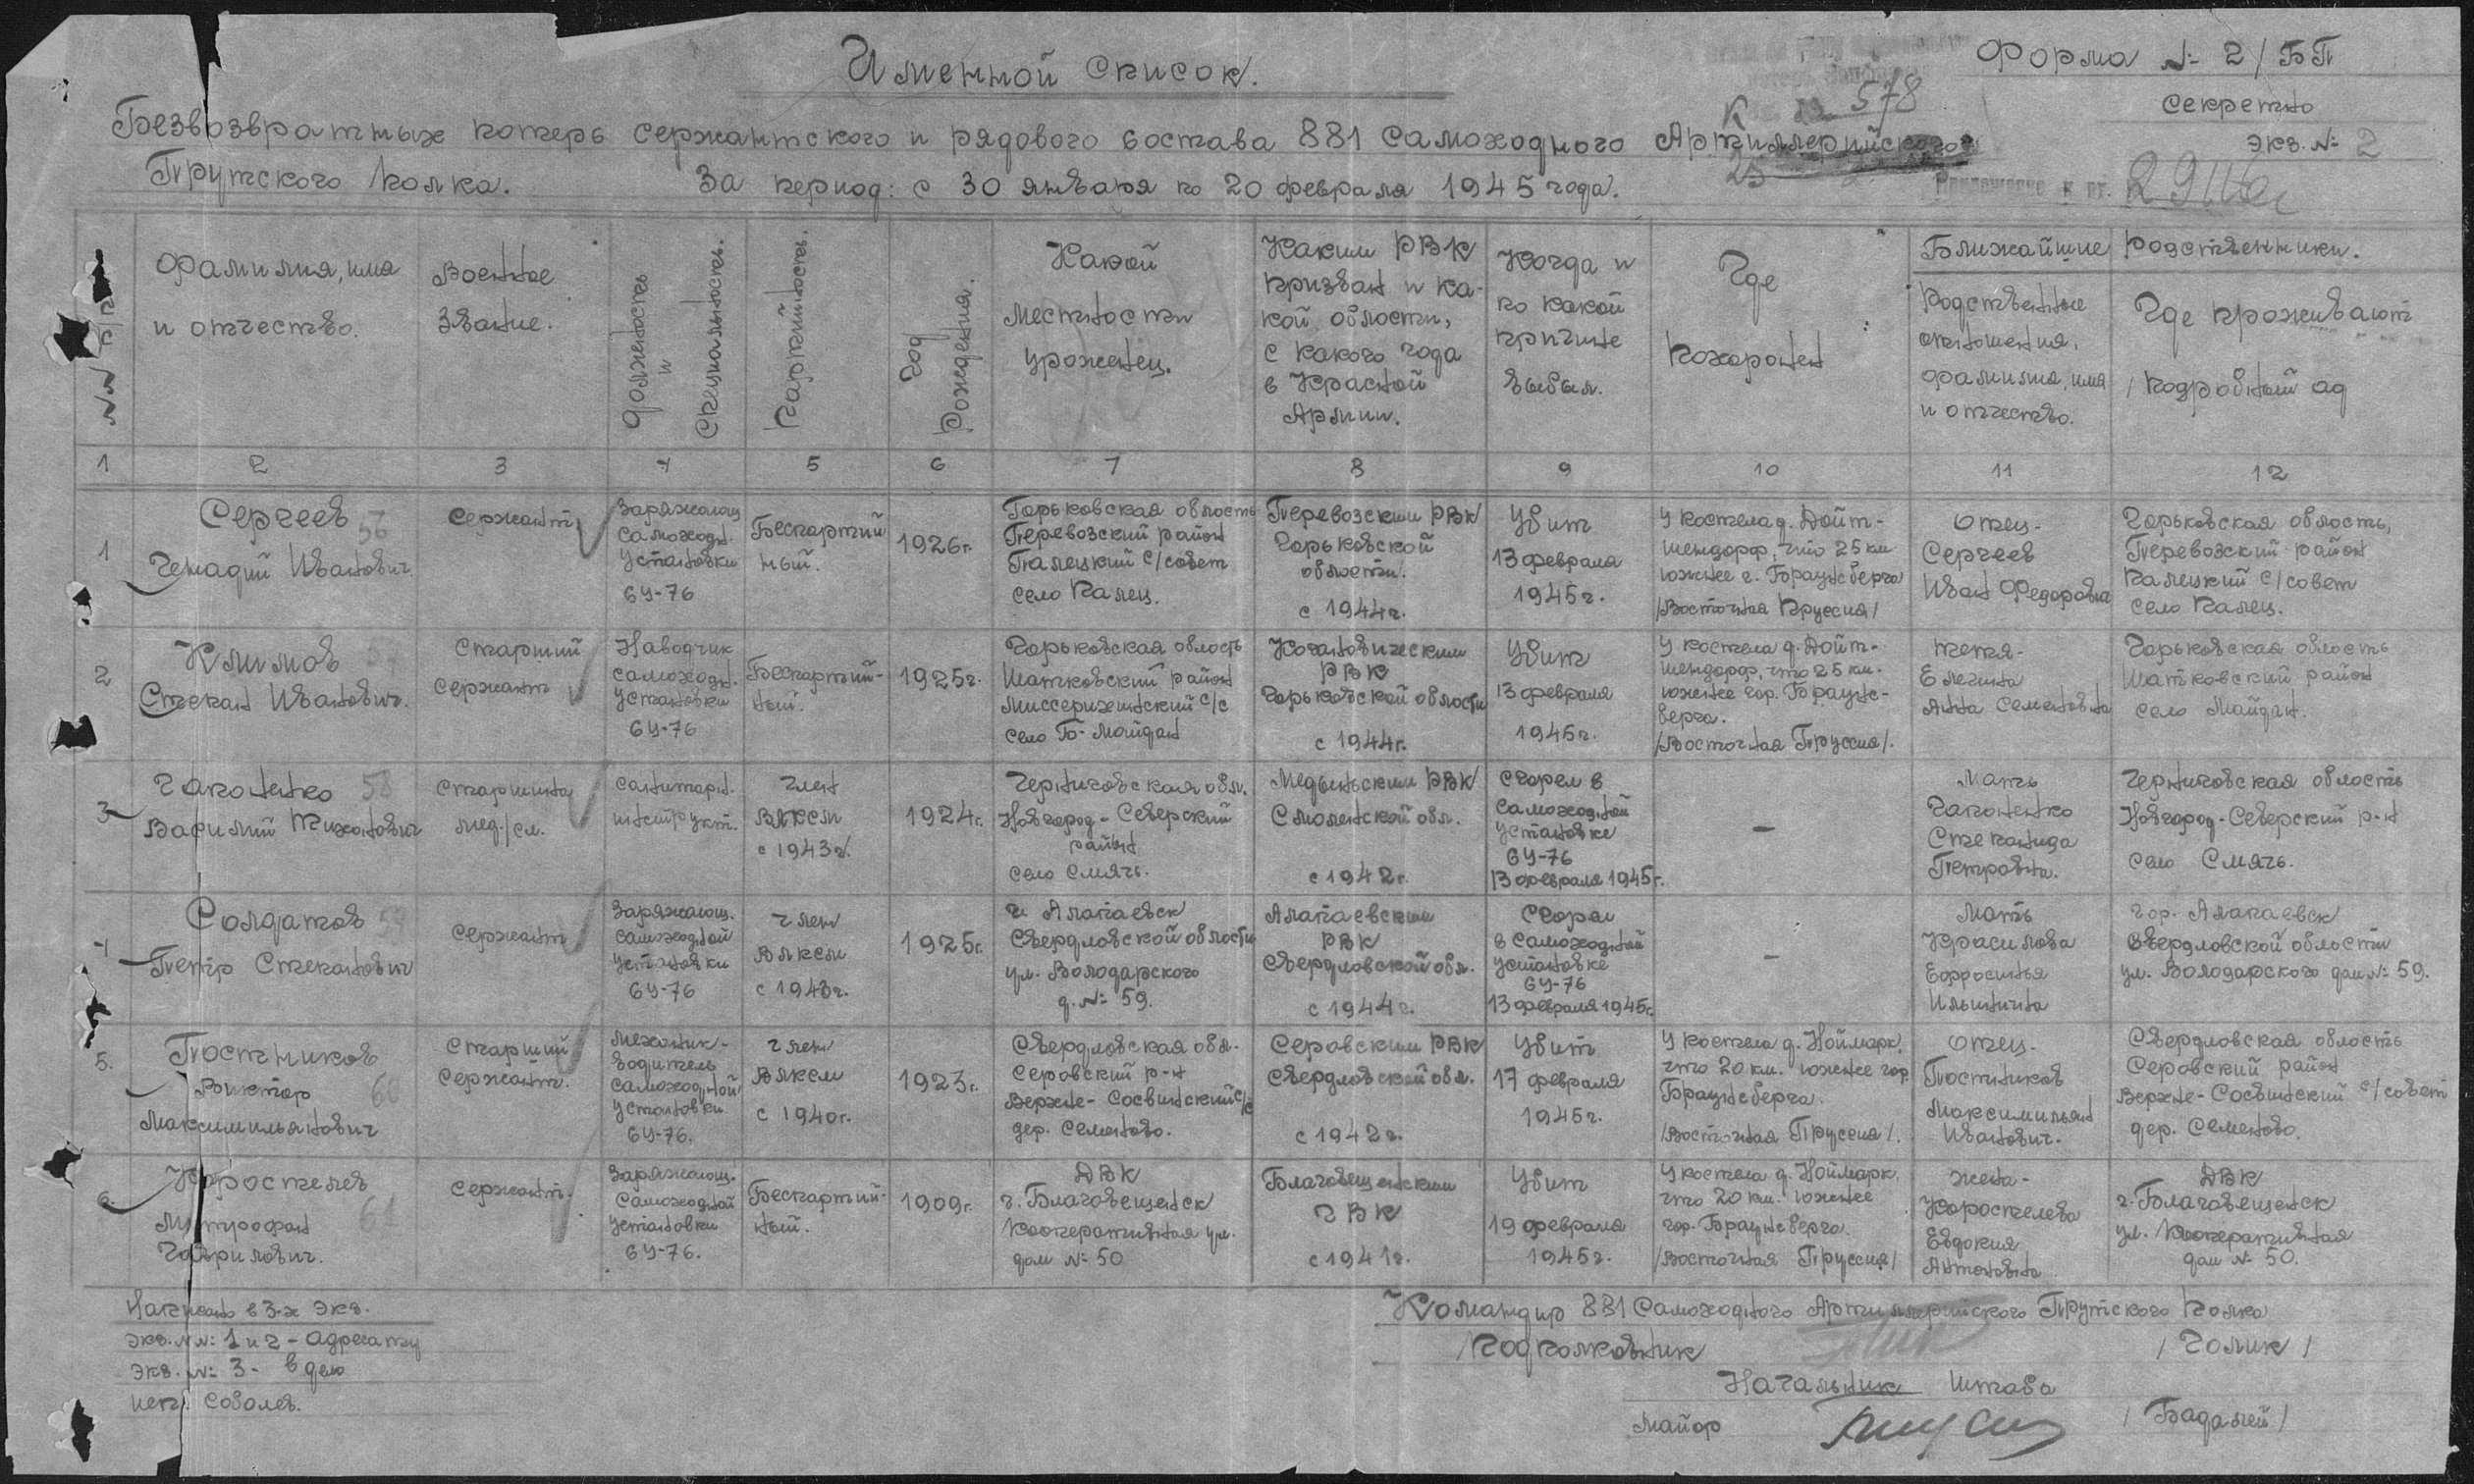 Именной список.
Форма № 2 / БП
Секретно
Экз. № 2
578
Безвозвратных потерь сержантского и рядового состава 881 Самоходного Артиллерийского
Прутского полка. За период: с 30 января по 20 февраля 1945 года.
Приложение к вх.
№№ п/п
Фамилия, имя
и отчество.
Военное
Звание.
Должность
и
Специальность.
Партийность.
Год
Рождения.
Какой
местности
уроженец.
Каким РВК
призван и ка-
кой области,
с какого года
в Красной
Армии.
Когда и
по какой
причине
выбыл.
Где
похоронен
Ближайшие Родственники.
Родственные
отношения,
фамилия, имя
и отчество.
Где проживают
/ подробный ад
1 2 3 4 5 6 7 8 9 10 11 12
1
Сергеев 56
Генадий Иванович
Сержант
Заряжающ
самоходн.
Установки
СУ-76
Беспартий
ный.
1926г.
Горьковская область
Перевозский район
Палецкий с/совет
село Палец.
Перевозским РВК
Горьковской
области.
с 1944г.
Убит
13 февраля
1945г.
У костела д. Дойт-
шендорф, что 25 км
южнее г. Браунсберга
/Восточная Пруссия/
Отец-
Сергеев
Иван Федорович
Горьковская область,
Перевозский район
Палецкий с/совет
село Палец.
2
Климов 57
Степан Иванович.
Старший
сержант
Наводчик
самоходн.
Установки
СУ-76
Беспартий-
ный.
1925г.
Горьковская область
Шатковский район
Миссерихинский с/с
село Б-Майдан
РВК
Горьковской области
с 1944г.
Убит
13 февраля
1945г.
У костела д. Дойт-
шендорф, что 25 км.
южнее гор. Браунс-
берга.
/Восточная Пруссия/.
тетя-
Елегина
Анна Семеновна
Горьковская область
Шатковский район
село Майдан.
3
Гапоненко 58
Василий Тихонович
Старшина
мед./сл.
санитарн.
инструкт.
член
ВЛКСМ
с 1943г.
1924г.
Черниговская обл.
Новгород-Северский
район
село Смячь.
Медынским РВК
Смоленской обл.
с 1942г.
Сгорел в
самоходной
установке
СУ-76
13 февраля 1945г.
—
Мать
Гапоненко
Степанида
Петровна.
Черниговская область
Новгород-Северский р-н
село Смячь.
4
Солдатов 59
Петр Степанович
Сержант
Заряжающ.
самоходной
Установки
СУ-76
член
ВЛКСМ
с 1943г.
1925г.
г. Алапаевск
Свердловской области
ул. Володарского
д. № 59.
Алапаевским
РВК
Свердловской обл.
с 1944г.
Сгорел
в самоходной
установке
СУ-76
13 февраля 1945г.
—
Мать
Красилова
Ефросинья
Ильинична
гор. Алапаевск
Свердловской области
ул. Володарского дом № 59.
5.
Постников
Виктор 60
Максимильянович
Старший
Сержант.
Механик-
водитель
самоходной
Установки
СУ-76.
член
ВЛКСМ
с 1940г.
1923г.
Свердловская обл.
Серовский р-н
Верхне-Сосвинский с/с
дер. Семеново.
Серовским РВК
Свердловской обл.
с 1942г.
Убит
17 февраля
1945г.
У костела д. Ноймарк,
что 20 км. южнее гор
Браунсберга.
/Восточная Пруссия/.
Отец-
Постников
Максимильян
Иванович.
Свердловская область
Серовский район
Верхне-Сосвинский с/совет
дер. Семеново.
6.
Коростелев
Митрофан 61
Гаврилович.
Сержант.
Заряжающ.
самоходной
Установки
СУ-76.
Беспартий-
ный.
1909г.
ДВК
г. Благовещенск
Кооперативная ул.
дом № 50
Благовещенским
ГВК
с 1941г.
Убит
19 февраля
1945г.
У костела д. Ноймарк,
что 20 км. южнее
гор. Браунсберга.
/Восточная Пруссия/
жена-
Коростелева
Евдокия
Антоновна
ДВК
г. Благовещенск
ул. Кооперативная
дом № 50.
Написано в 3-х экз.
экз. №№: 1 и 2 - адресату
экз. №: 3 - в дело
исп. Соболев.
Командир 881 Самоходного Артиллерийского Прутского полка
Подполковник / Голик /
Начальник Штаба
Майор / Бадалей /